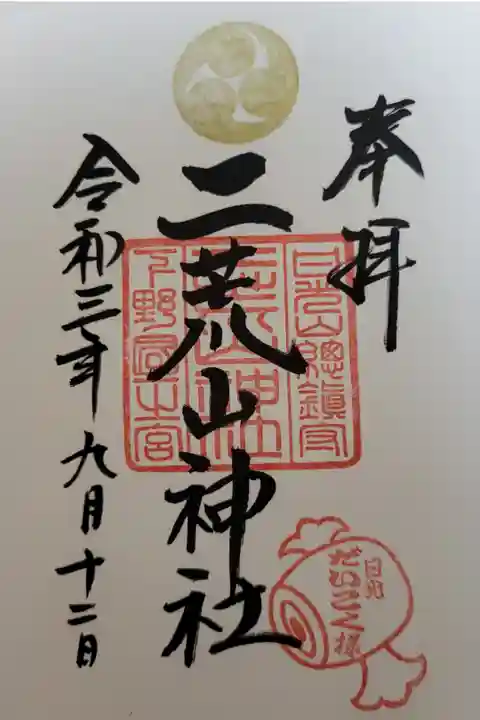 奉拝
日光山總鎮守
二荒山神社
下野國一宮
令和三年九月十二日
日光
だいこく様